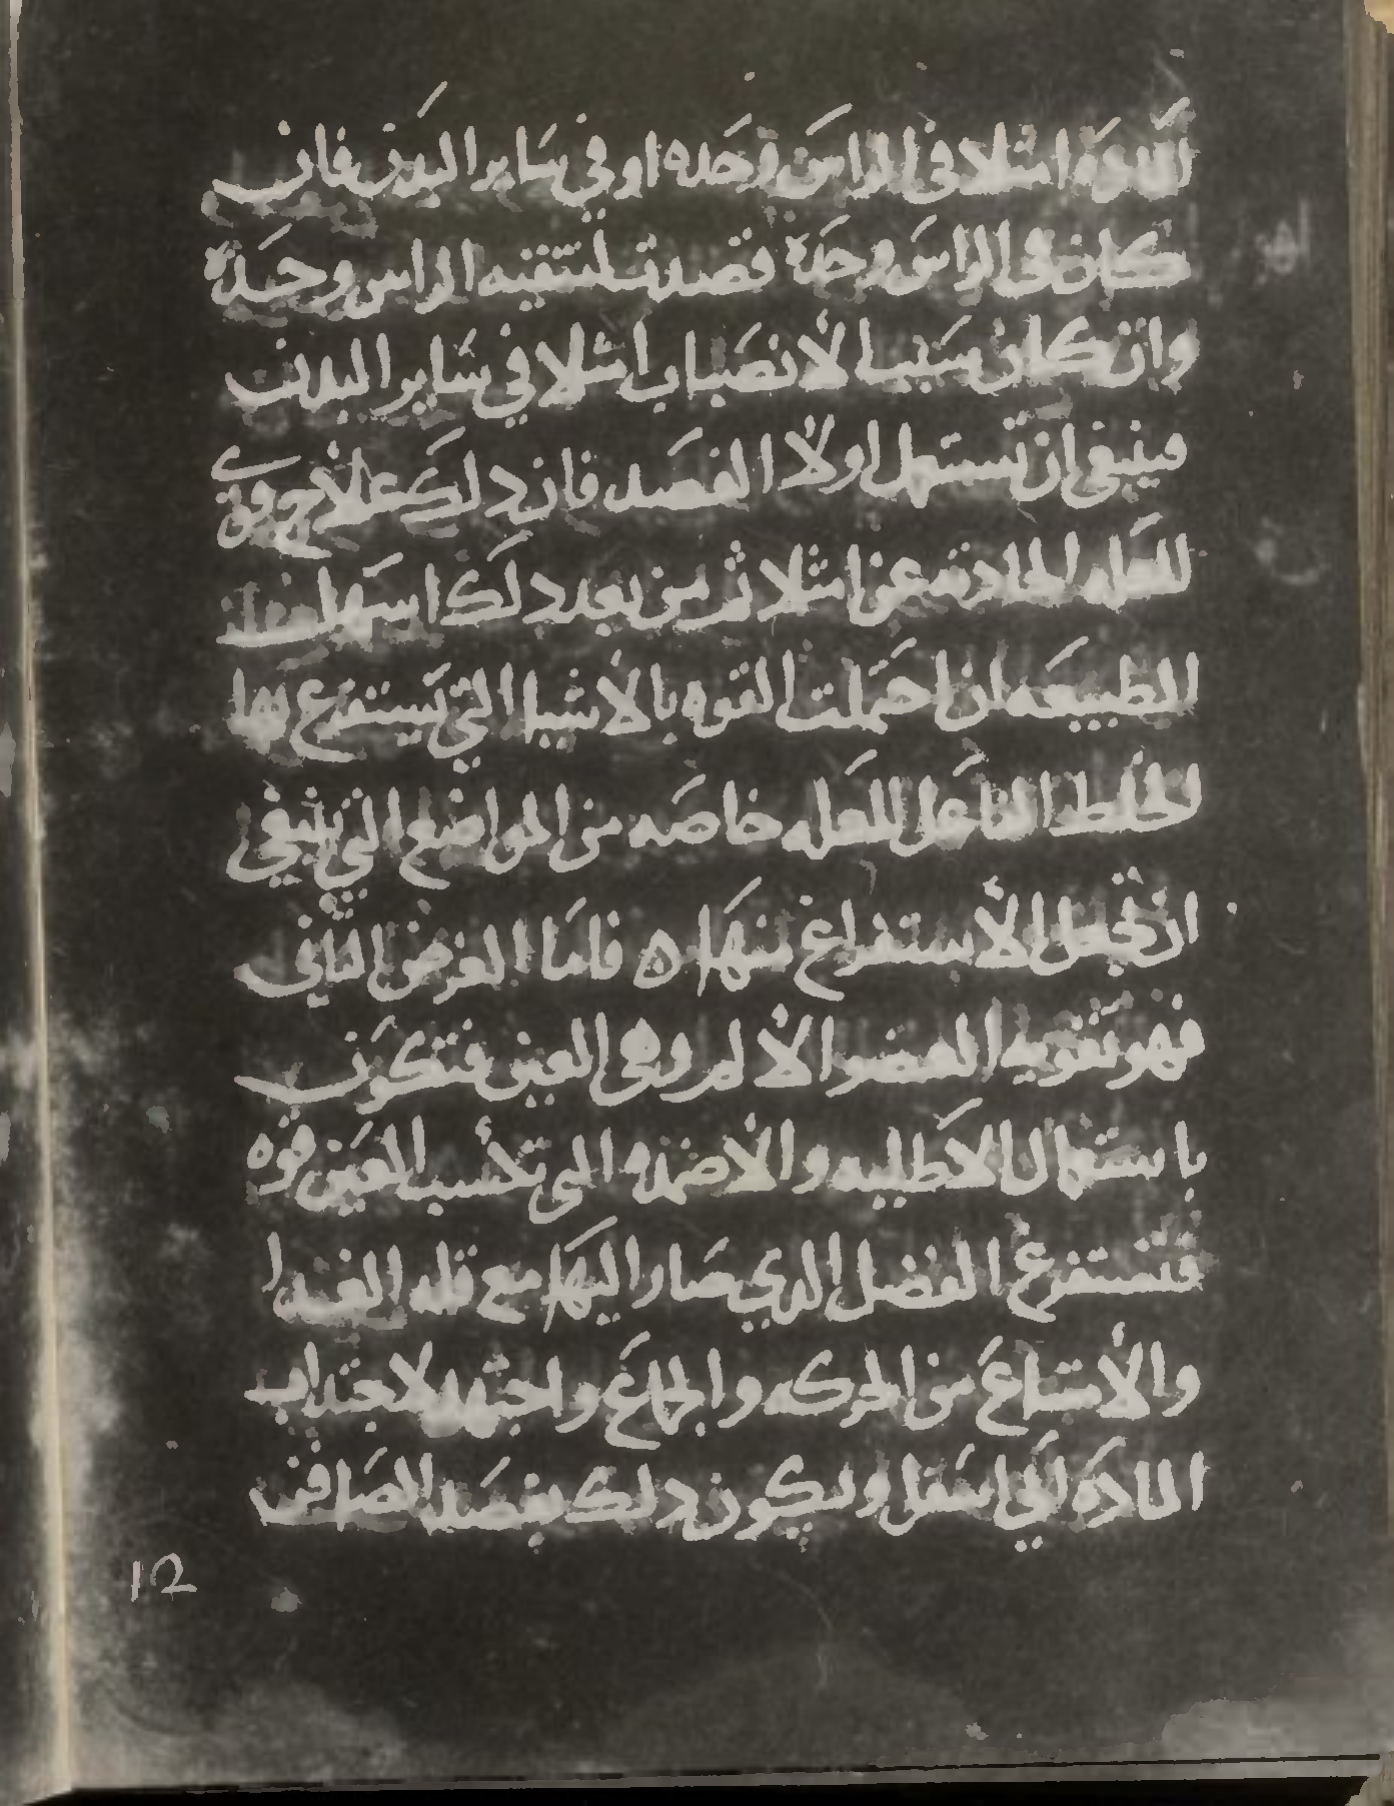 المادة امتلا في الراس وحده او في ساير البدن فان
كان في الراس وحده قصدت لتنقيه الراس وحده
وان كان سببا لانصباب امتلا في ساير البدن
فينبغي ان تستعمل اولا الفصد فان دلك علاج قوي
للعله الحادثه عن امتلا ثم من بعد دلك اسهلت
الطبيعه ان احتملت القوه بالاشيا التي تستفرغ بها
الخلط الفاعل للعله خاصه من المواضع التي ينبغي
ان تجعل الاستفراغ منها ه فاما الغرض الثاني
فهو تقويه العضو الالم وهي العين فتكون
باستعمال الاطليه والاضمده التي تكسب العين قوه
فتستفرغ الفضل الدي صار اليها مع قله الغدا
والامتناع من الحركه والجماع واجتهد لاجتداب
الماده الي اسفل وليكون دلك بفصد الصافن
12